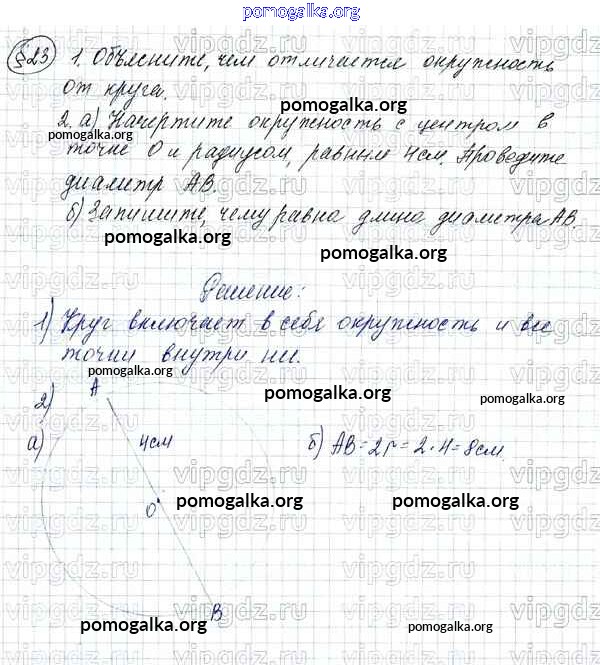 pomogalka.org
§23 1. Объясните, чем отличается окружность
от круга.
pomogalka.org
2. а) Начертите окружность с центром в
pomogalka.org
точке О и радиусом, равным 4см. Проведите
диаметр АВ.
pomogalka.org
б) Запишите, чему равна длина диаметра АВ.
pomogalka.org
pomogalka.org
Решение:
1) Круг включает в себя окружность и все
точки внутри ни.
pomogalka.org
pomogalka.org
pomogalka.org
2) А
а) 4см б) АВ=2r=2·4=8см.
О
pomogalka.org
pomogalka.org
В
pomogalka.org
pomogalka.org
vipgdz.ru